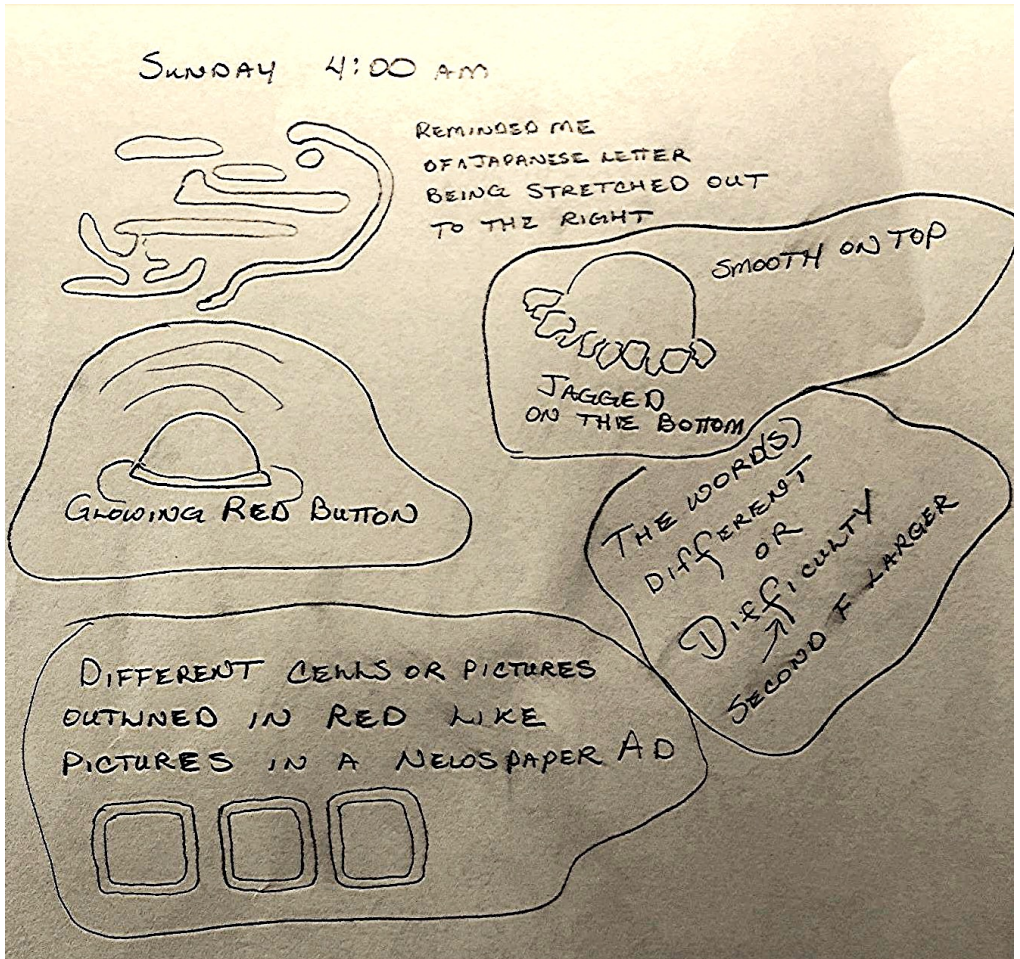 SUNDAY 4:00 AM
REMINDED ME
OF A JAPANESE LETTER
BEING STRETCHED OUT
TO THE RIGHT
SMOOTH ON TOP
JAGGED
ON THE BOTTOM
GLOWING RED BUTTON
THE WORD(S)
DIFFERENT
OR
DIFFICULTY
SECOND F LARGER
DIFFERENT CELLS OR PICTURES
OUTLINED IN RED LIKE
PICTURES IN A NEWSPAPER AD